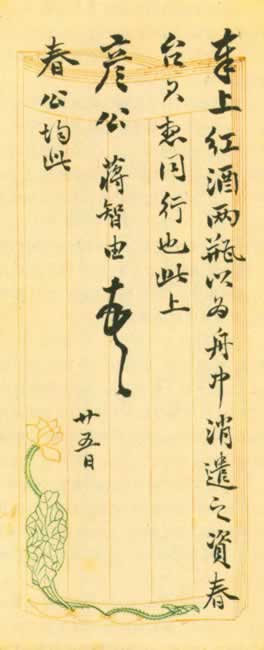 奉上红酒两瓶以为舟中消遣之资春
台只惠同行也此上
彦公 蒋智由
春公均此
廿五日